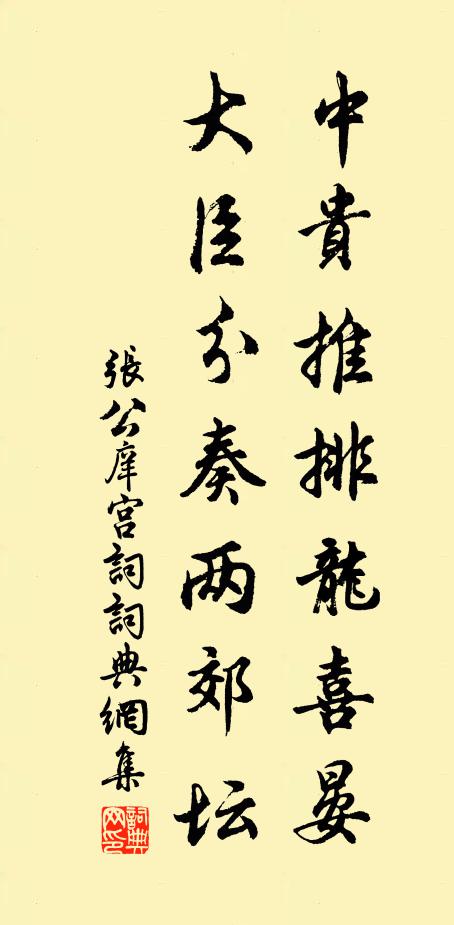 中貴推排龍喜晏
大臣分奏两郊坛
張公庠宮詞詞典網集
詞典網印